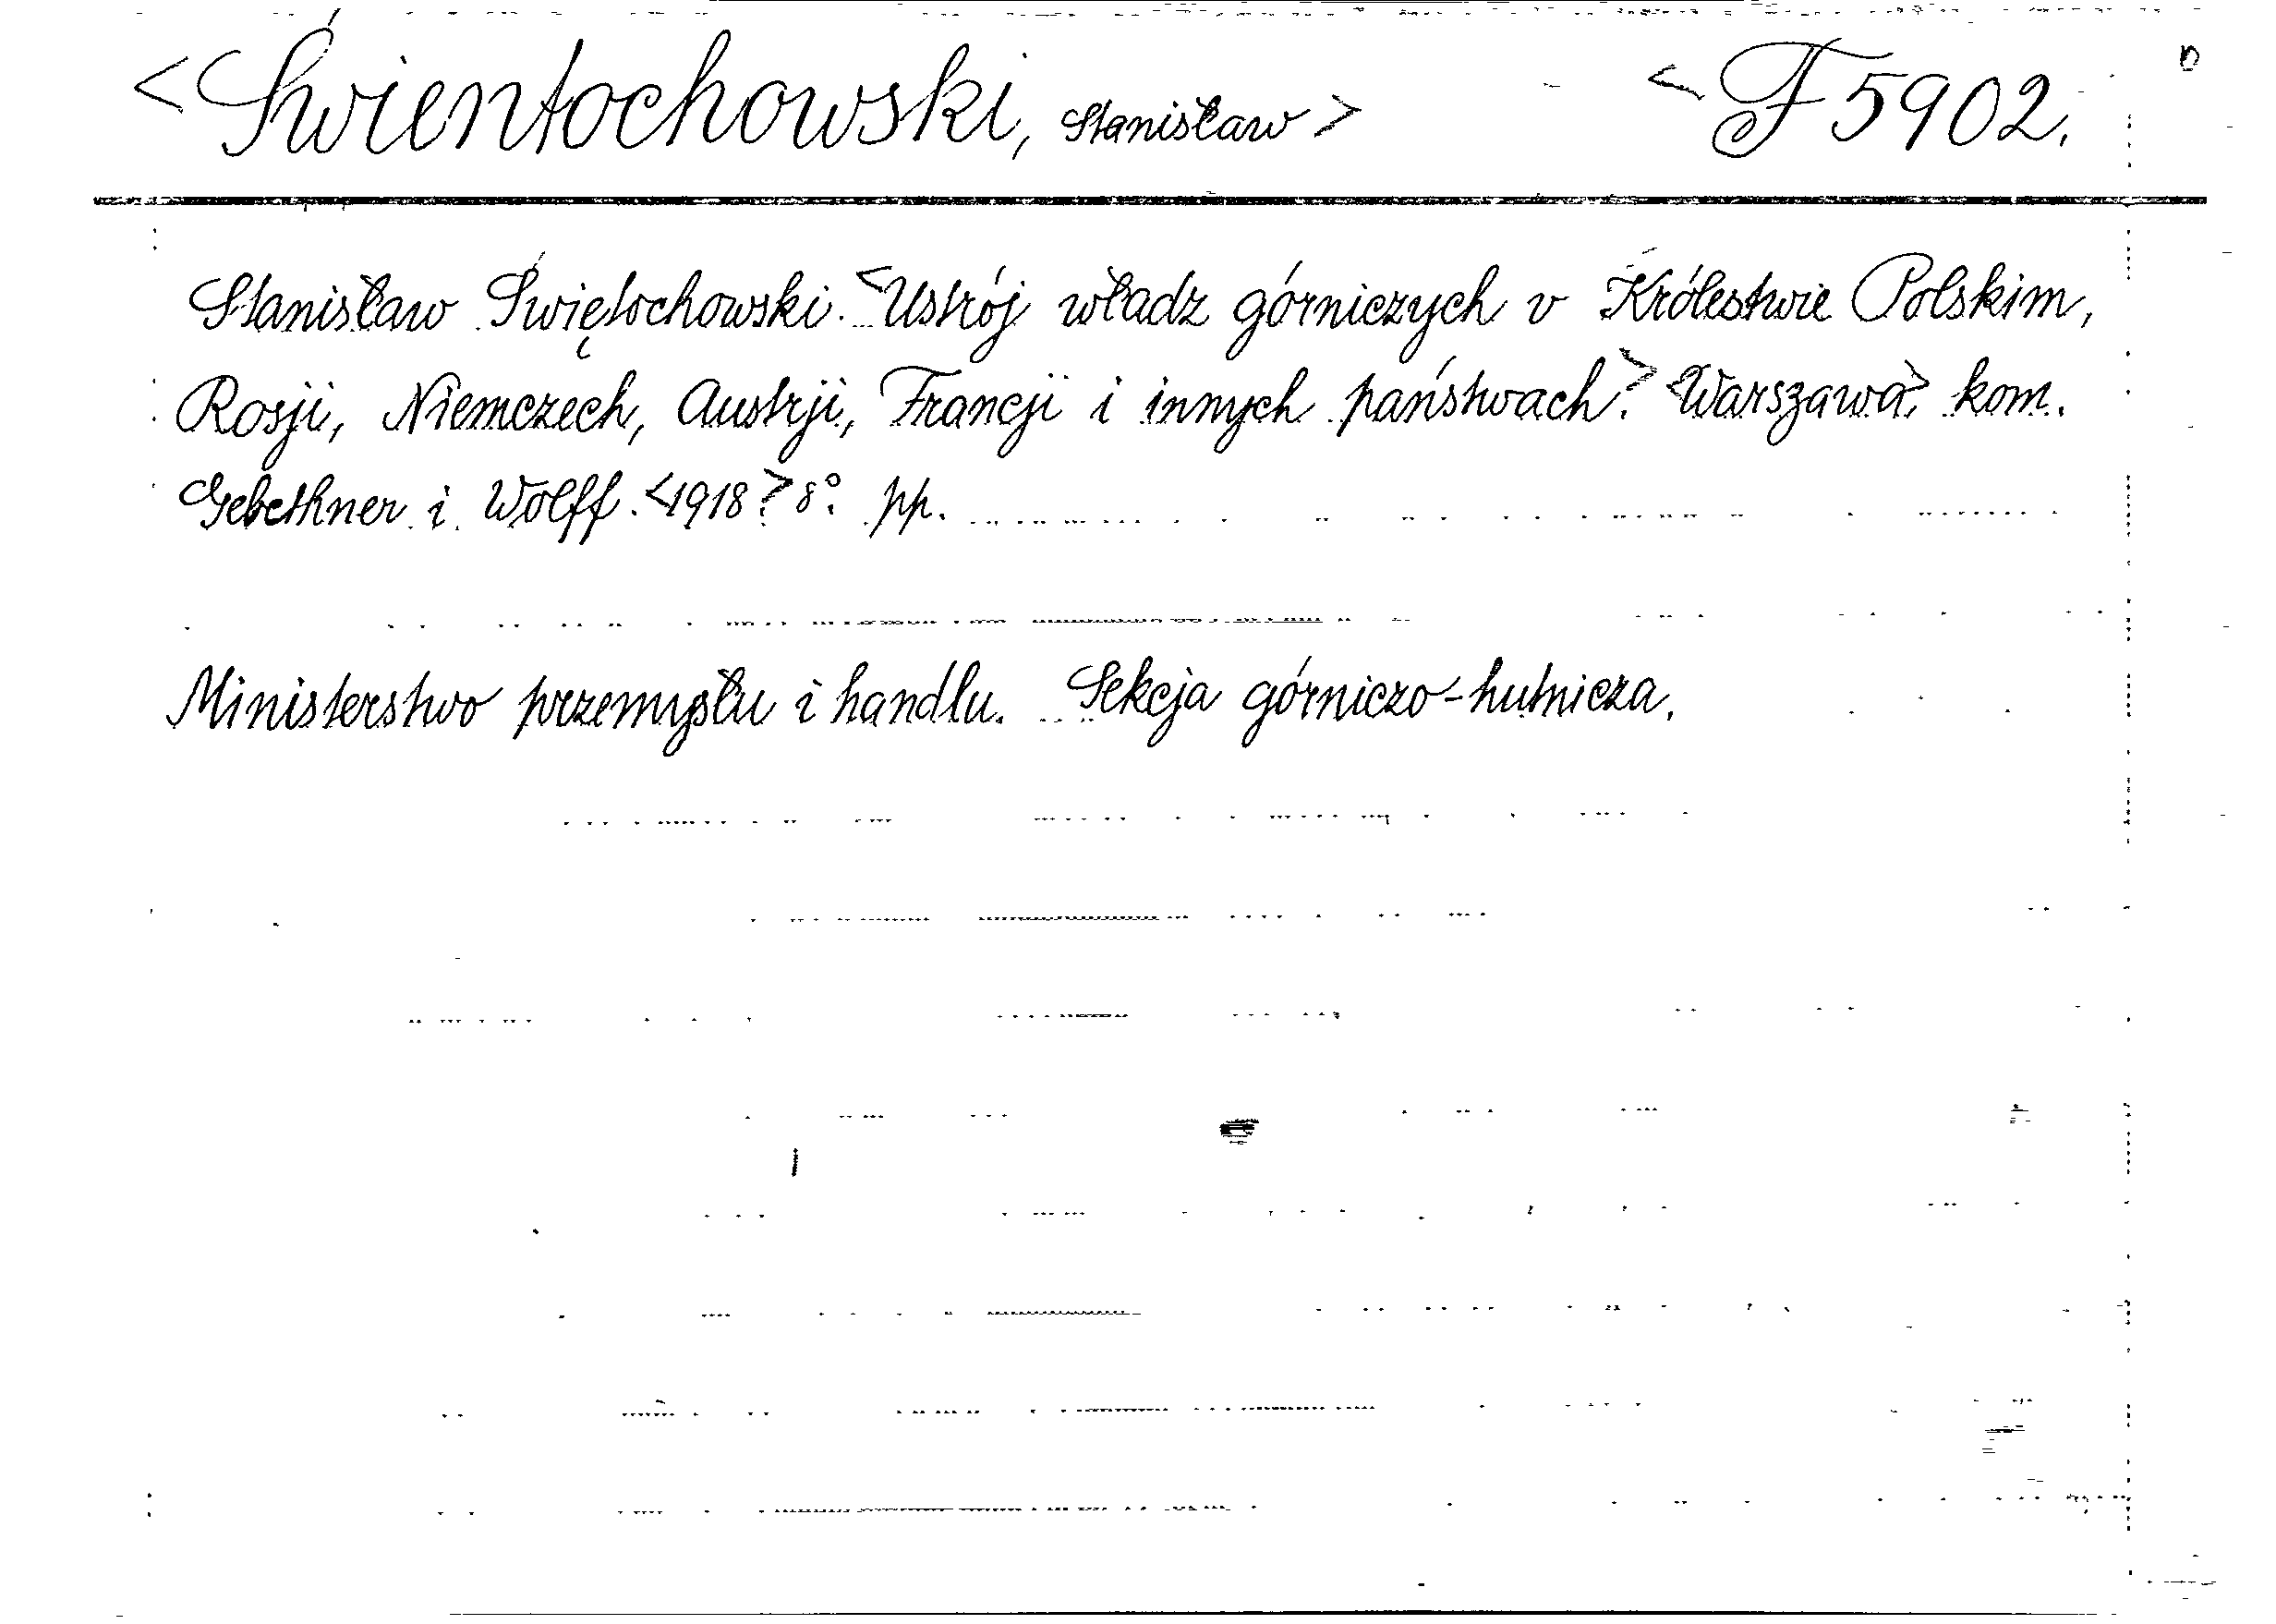 <Świentochowski, Stanisław> <F 5902.
Stanisław Świętochowski. <Ustrój władz górniczych v Królestwie Polskim,
Rosji, Niemczech, Austrji, Francji i innych państwach.> <Warszawa>, kom.
Gebethner i Wolff. <1918?> 8°. pp.
Ministerstwo przemysłu i handlu. Sekcja górniczo-hutnicza.